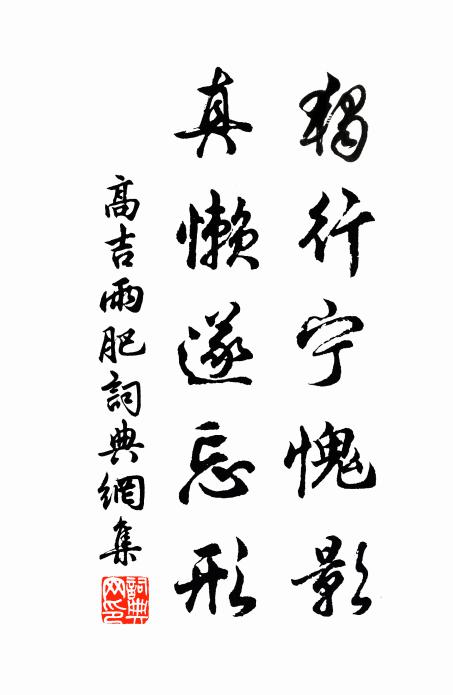 獨行宁愧影
真懶遂忘形
高吉雨肥詞典網集
詞典
网印